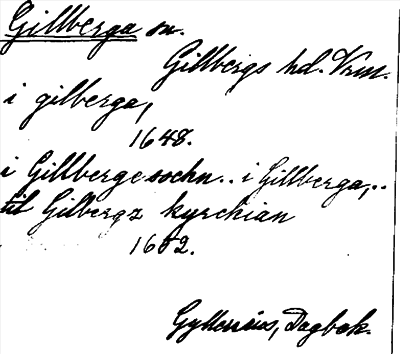 Gillberga sn.
Gillbergs hd. Vrm.
i gilberga,
1648.
i Gillberge sochn.. i Gillberga,..
til Gilbergz kyrckian
1652.
Gyllenius, Dagbok.